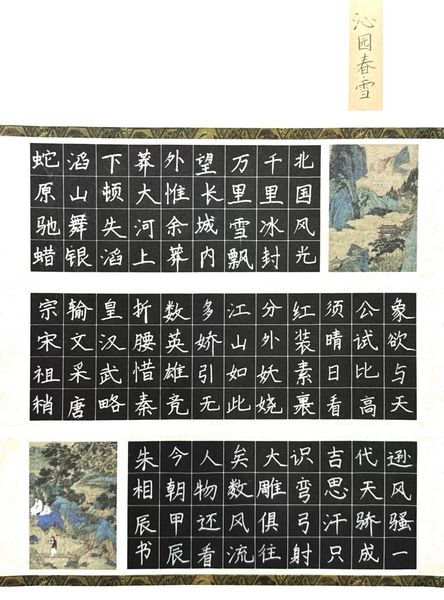 沁园春雪
北国风光
千里冰封
万里雪飘
望长城内
外惟余莽
莽大河上
下顿失滔
滔山舞银
蛇原驰蜡
象欲与天
公试比高
须晴日看
红装素裹
分外妖娆
江山如此
多娇引无
数英雄竞
折腰惜秦
皇汉武略
输文采唐
宗宋祖稍
逊风骚一
代天骄成
吉思汗只
识弯弓射
大雕俱往
矣数风流
人物还看
今朝甲辰
朱相辰书